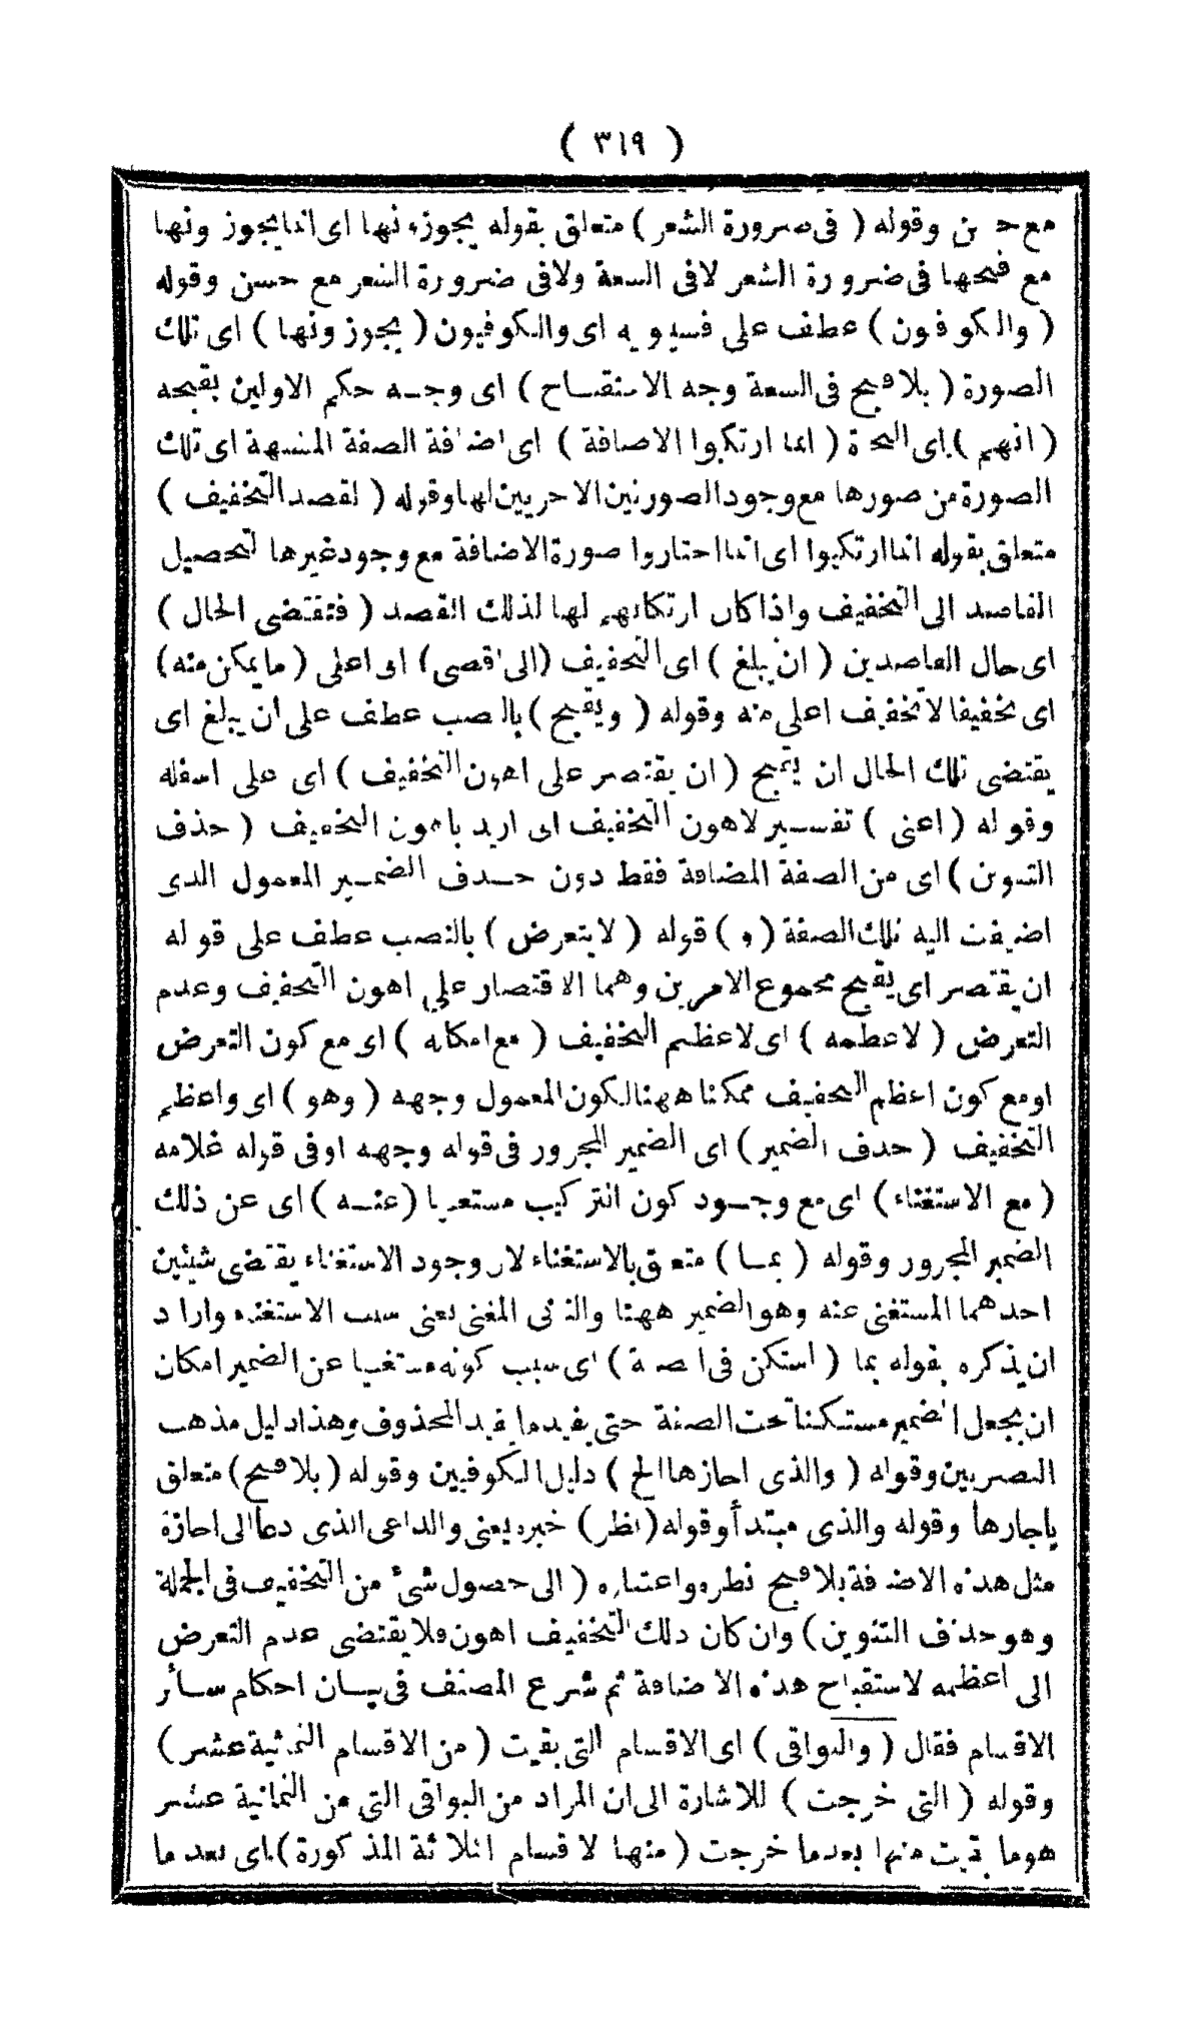 ( ٣١٩ )
مع حسن وقوله ( فى ضرورة الشعر ) متعلق بقوله يجوزونها اى انما يجوزونها
مع قبحها فى ضرورة الشعر لا فى السعة ولا فى ضرورة الشعر مع حسن وقوله
( والكوفيون ) عطف على فسيبويه اى والكوفيون ( يجوزونها ) اى تلك
الصورة ( بلا قبح فى السعة وجه الاستقباح ) اى وجه حكم الاولين بقبحه
( انهم ) اى النحاة ( انما ارتكبوا الاضافة ) اى اضافة الصفة المشبهة اى تلك
الصورة من صورها مع وجود الصورتين الاخريين لها وقوله ( لقصد التخفيف )
متعلق بقوله انما ارتكبوا اى انما اختاروا صورة الاضافة مع وجود غيرها لتحصيل
القاصد الى التخفيف واذا كان ارتكابهم لها لذلك القصد ( فتقتضى الحال )
اى حال القاصدين ( ان يبلغ ) اى التخفيف ( الى اقصى ) اى اعلى ( ما يمكن منه )
اى تخفيفا لا تخفيف اعلى منه وقوله ( ويقبح ) بالنصب عطف على ان يبلغ اى
يقتضى تلك الحال ان يقبح ( ان يقتصر على اهون التخفيف ) اى على اسفله
وقوله ( اعنى ) تفسير لاهون التخفيف اى اريد باهون التخفيف ( حذف
التنوين ) اى من الصفة المضافة فقط دون حذف الضمير المعمول الذى
اضيفت اليه تلك الصفة ( و ) قوله ( لا يتعرض ) بالنصب عطف على قوله
ان يقتصر اى يقبح مجموع الامرين وهما الاقتصار على اهون التخفيف وعدم
التعرض ( لاعظمه ) اى لاعظم التخفيف ( مع امكانه ) اى مع كون التعرض
او مع كون اعظم التخفيف ممكنا ههنا لكون المعمول وجهه ( وهو ) اى واعظم
التخفيف ( حذف الضمير ) اى الضمير المجرور فى قوله وجهه او فى قوله غلامه
( مع الاستغناء ) اى مع وجود كون التركيب مستغنيا ( عنه ) اى عن ذلك
الضمير المجرور وقوله ( بما ) متعلق بالاستغناء لان وجود الاستغناء يقتضى شيئين
احدهما المستغنى عنه وهو الضمير ههنا والثانى المغنى يعنى سبب الاستغناء واراد
ان يذكره بقوله بما ( استكن فى الصفة ) اى سبب كونه مستغنيا عن الضمير امكان
ان يجعل الضمير مستكنا تحت الصفة حتى يفيد ما يفيد المحذوف وهذا دليل مذهب
البصريين وقوله ( والذى اجازها الخ ) دليل الكوفيين وقوله ( بلا قبح ) متعلق
باجازها وقوله والذى مبتدأ وقوله ( نظر ) خبره يعنى والداعى الذى دعا الى اجازة
مثل هذه الاضافة بلا قبح نظره واعتباره ( الى حصول شئ من التخفيف فى الجملة
وهو حذف التنوين ) وان كان ذلك التخفيف اهون فلا يقتضى عدم التعرض
الى اعظمه لاستقباح هذه الاضافة ثم شرع المصنف فى بيان احكام سائر
الاقسام فقال ( والبواقى ) اى الاقسام التى بقيت ( من الاقسام الثمانية عشر )
وقوله ( التى خرجت ) للاشارة الى ان المراد من البواقى التى من الثمانية عشر
هو ما بقيت منها بعد ما خرجت ( منها الاقسام الثلاثة المذكورة ) اى بعد ما